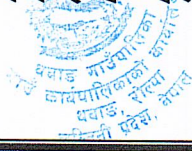 थवाङ गाउँपालिका
गाउँ कार्यपालिकाको कार्यालय
थवाङ, रोल्पा
प्रदेश, नेपाल